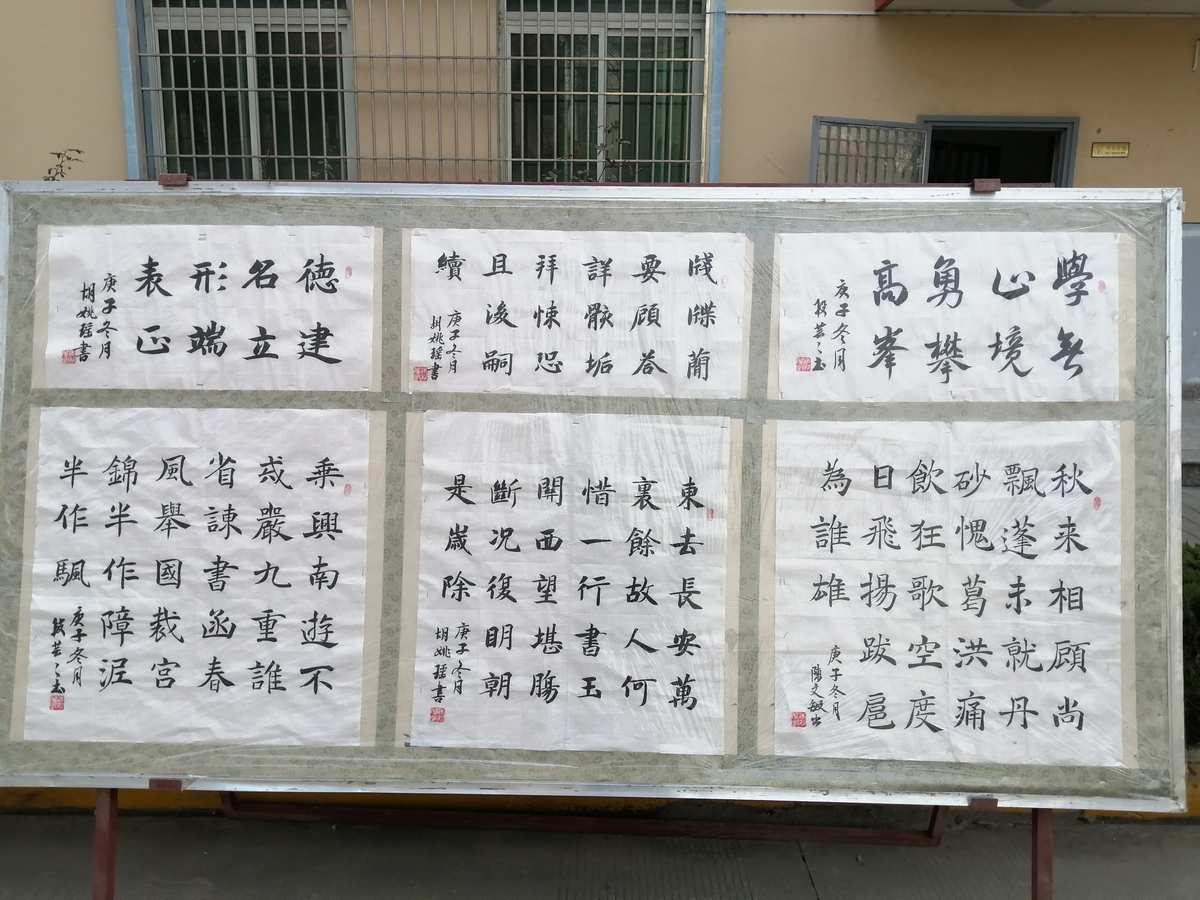 學无
止境
勇攀
高峯
庚子冬月
牋牒蕳
要顧荅
詳骸垢
拜悚恐
且後嗣
續
庚子冬月
胡姚瑶書
德建
名立
形端
表正
庚子冬月
胡姚瑶書
秋来相顧尚
飄蓬未就丹
砂愧葛洪痛
飲狂歌空度
日飛揚跋扈
為誰雄
庚子冬月
陳文敏书
東去長安萬
裏餘故人何
惜一行書玉
關西望堪腸
斷況復明朝
是歲除
庚子冬月
胡姚瑶書
乘興南遊不
戒嚴九重誰
省諫書函春
風舉國裁宮
錦半作障泥
半作颿
庚子冬月